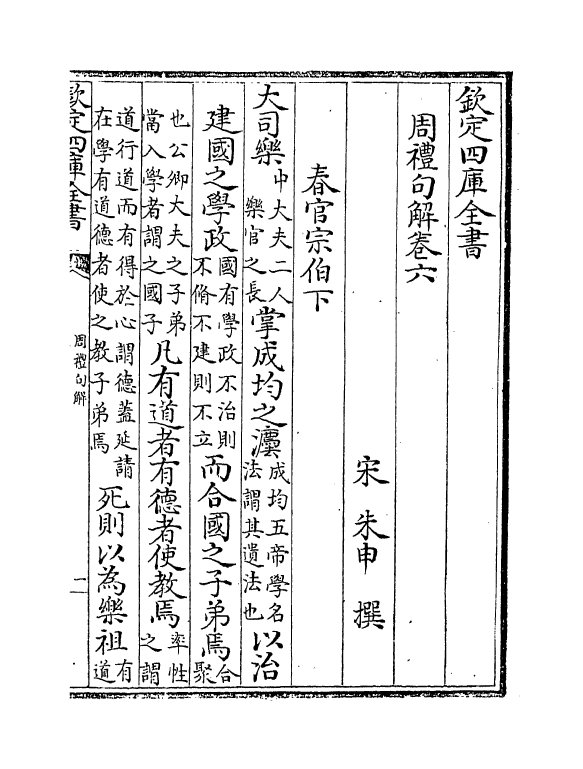 欽定四庫全書
周禮句解卷六
宋 朱申 撰
春官宗伯下
大司樂中大夫二人樂官之長掌成均之灋成均五帝學名法謂其遺法也以治
建國之學政國有學政不治則不脩不建則不立而合國之子弟焉合聚
也公卿大夫之子弟當入學者謂之國子凡有道者有德者使教焉率性之謂
道行道而有得於心謂德蓋延請在學有道德者使之教子弟焉死則以為樂祖有道
欽定四庫全書
周禮句解